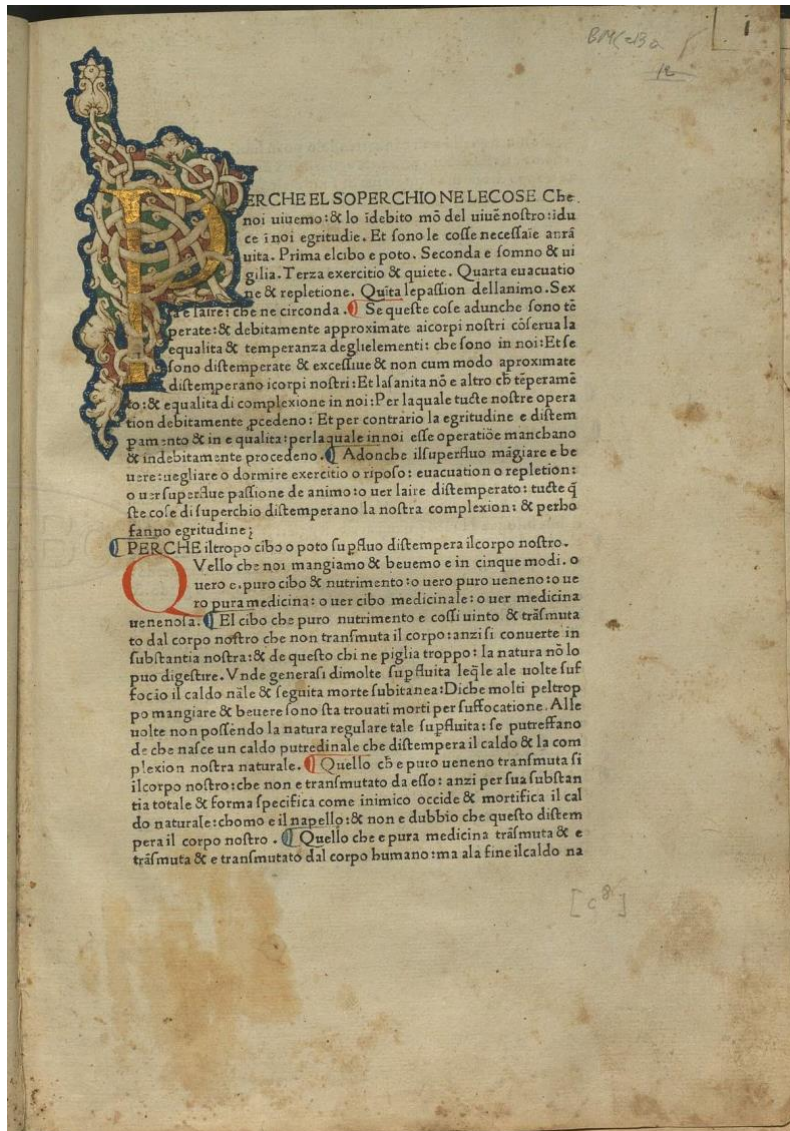 i
12
PERCHE EL SOPERCHIO NE LE COSE Che
noi uiuemo: & lo īdebito mō del uiuē nostro: idu
ce i noi egritudie. Et sono le cosse necessaie anrā
uita. Prima elcibo e poto. Seconda e somno & ui
gilia. Terza exercitio & quiete. Quarta euacuatio
ne & repletione. Quita lepassion dellanimo. Sex
ta e laire: che ne circonda. ¶ Se queste cose adunche sono tē
perate: & debitamente approximate aicorpi nostri cōserua la
equalita & temperanza deglielementi: che sono in noi: Et se
sono distemperate & excessiue & non cum modo aproximate
distemperano icorpi nostri: Et lasanita nō e altro cħ tēperamē
to: & equalita di complexione in noi: Per laquale tucte nostre opera
tion debitamente ꝓcedeno: Et per contrario la egritudine e distem
pamento & in e qualita: perlaquale in noi esse operatiōe manchano
& indebitamente procedeno. ¶ Adonche ilsuperfluo māgiare e be
uere: uegliare o dormire exercitio o riposo: euacuation o repletion:
o uer superflue passione de animo: o uer laire distemperato: tucte q̄
ste cose di superchio distemperano la nostra complexion: & perho
fanno egritudine;
¶ PERCHE iltropo cibo o poto supfluo distempera ilcorpo nostro.
QVello che noi mangiamo & beuemo e in cinque modi. o
uero e. puro cibo & nutrimento: o uero puro ueneno: o ue
ro pura medicina: o uer cibo medicinale: o uer medicina
uenenosa. ¶ El cibo che puro nutrimento e cossi uinto & trāsmuta
to dal corpo nostro che non transmuta il corpo: anzi si conuerte in
substantia nostra: & de questo chi ne piglia troppo: la natura nō lo
puo digestire. Vnde generasi dimolte supfluita leq̄le ale uolte suf
focāo il caldo nāle & seguita morte subitanea: Diche molti peltrop
po mangiare & beuere sono sta trouati morti per suffocatione. Alle
uolte non possendo la natura regulare tale supfluita: se putreffano
de che nasce un caldo putredinale che distempera il caldo & la com
plexion nostra naturale. ¶ Quello cħ e puro ueneno transmuta si
ilcorpo nostro: che non e transmutato da esso: anzi per sua substan
tia totale & forma specifica come inimico occide & mortifica il cal
do naturale: chomo e il napello: & non e dubbio che questo distem
pera il corpo nostro. ¶ Quello che e pura medicina trāsmuta & e
trāsmuta & e transmutato dal corpo humano: ma ala fine ilcaldo na
[c8]